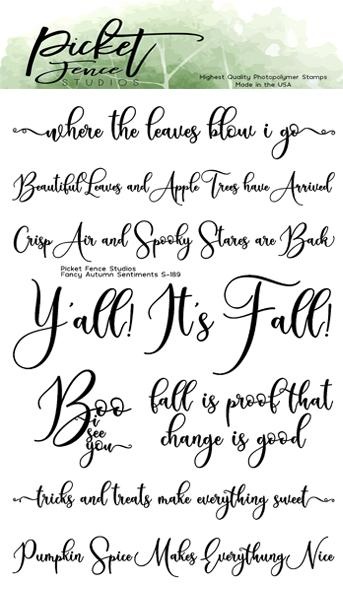 Picket
Fence
STUDIOS
Highest Quality Photopolymer Stamps
Made in the USA
where the leaves blow i go
Beautiful Leaves and Apple Trees have Arrived
Crisp Air and Spooky Stares are Back
Picket Fence Studios
Fancy Autumn Sentiments S-189
Y'all! It's Fall!
Boo
i
see
you
fall is proof that
change is good
tricks and treats make everything sweet
Pumpkin Spice Makes Everythung Nice